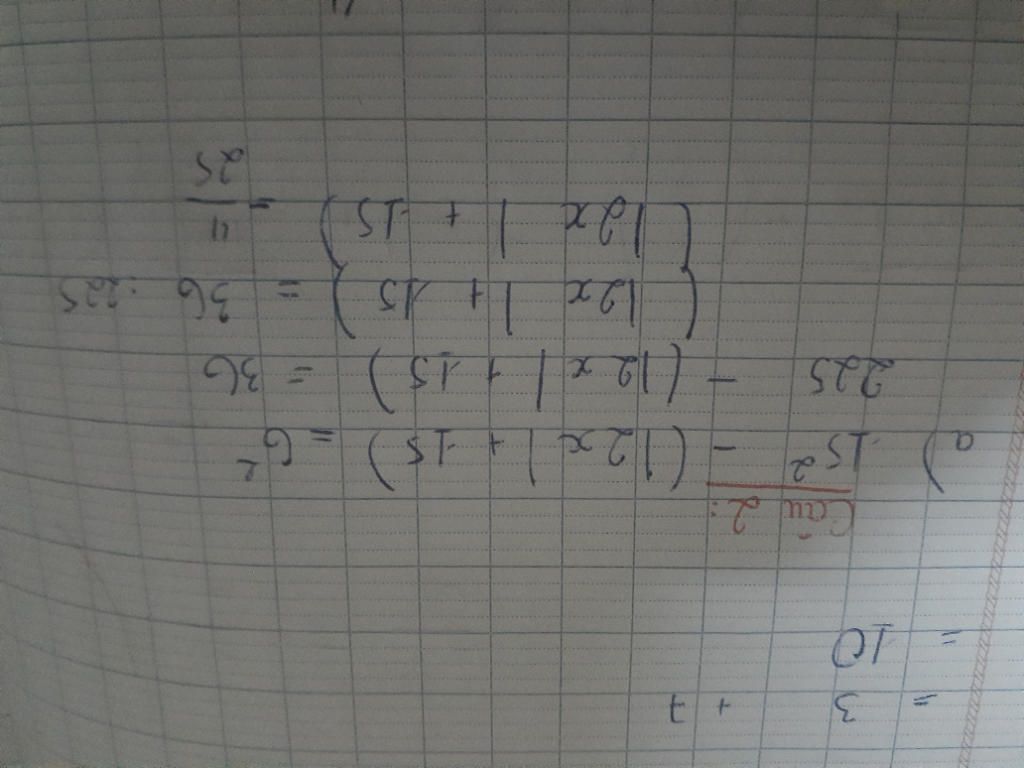 = 3 + 7
= 10
Câu 2:
a) 15² - (|2x| + 15) = 6²
225 - (|2x| + 15) = 36
(|2x| + 15) = 36 : 225
(|2x| + 15) = 4/25